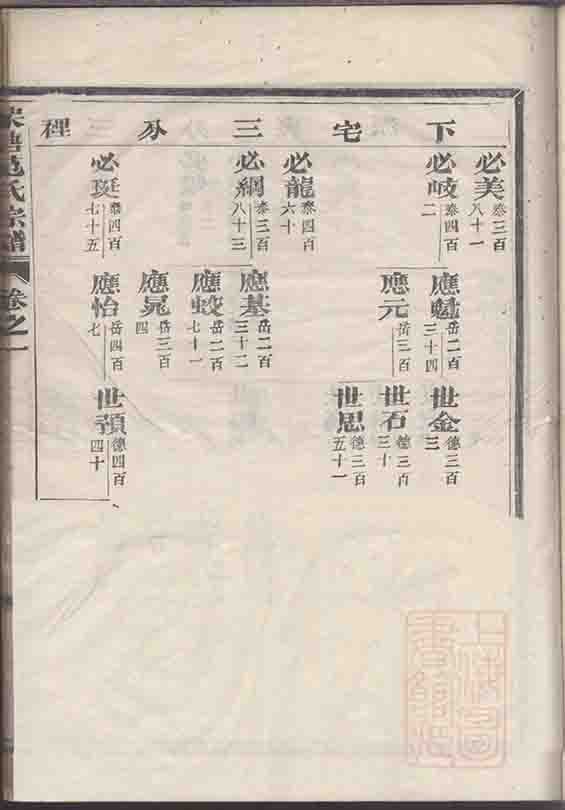 下宅三分裡
必美 泰三百八十一
必岐 泰四百二
應魁 岳二百三十四
世金 德三百三
應元 岳三百
世石 德三百三十
世思 德三百五十一
必龍 泰四百六十
必綱 泰三百八十三
應基 岳二百三十二
應蛟 岳二百七十一
應晃 岳三百四
必珽 泰四百七十五
應怡 岳四百七
世頊 德四百四十
范氏宗譜
卷之一